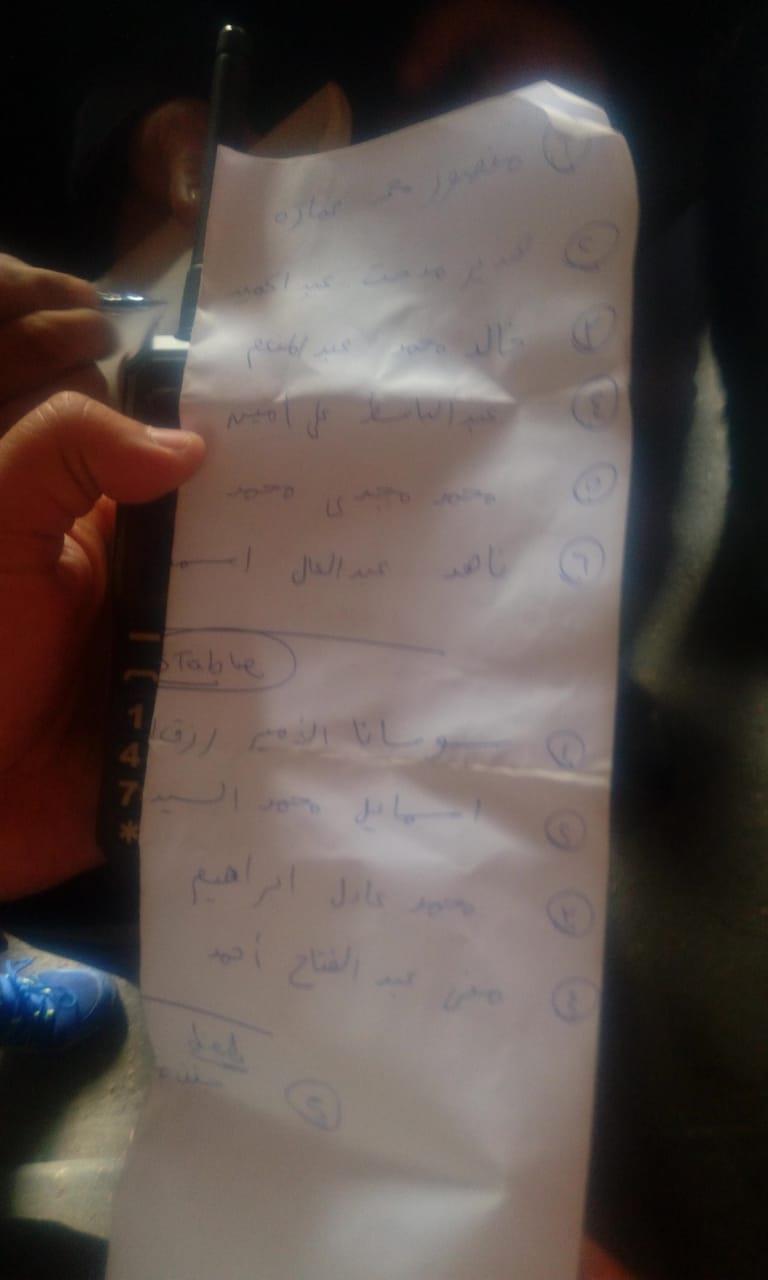 ١ منصور محمد عماره
٢ مدحت عبد الحميد
٣ خالد محمد عبد المنعم
٤ عبد الباسط على امين
٥ محمد مجدى محمد
٦ ناهد عبد العال اسم
Table
١ سوسانا الأمير رزق
٢ اسماعيل محمد السيد
٣ محمد عادل ابراهيم
٤ منى عبد الفتاح أحمد
ded
٢
1
4
7
*